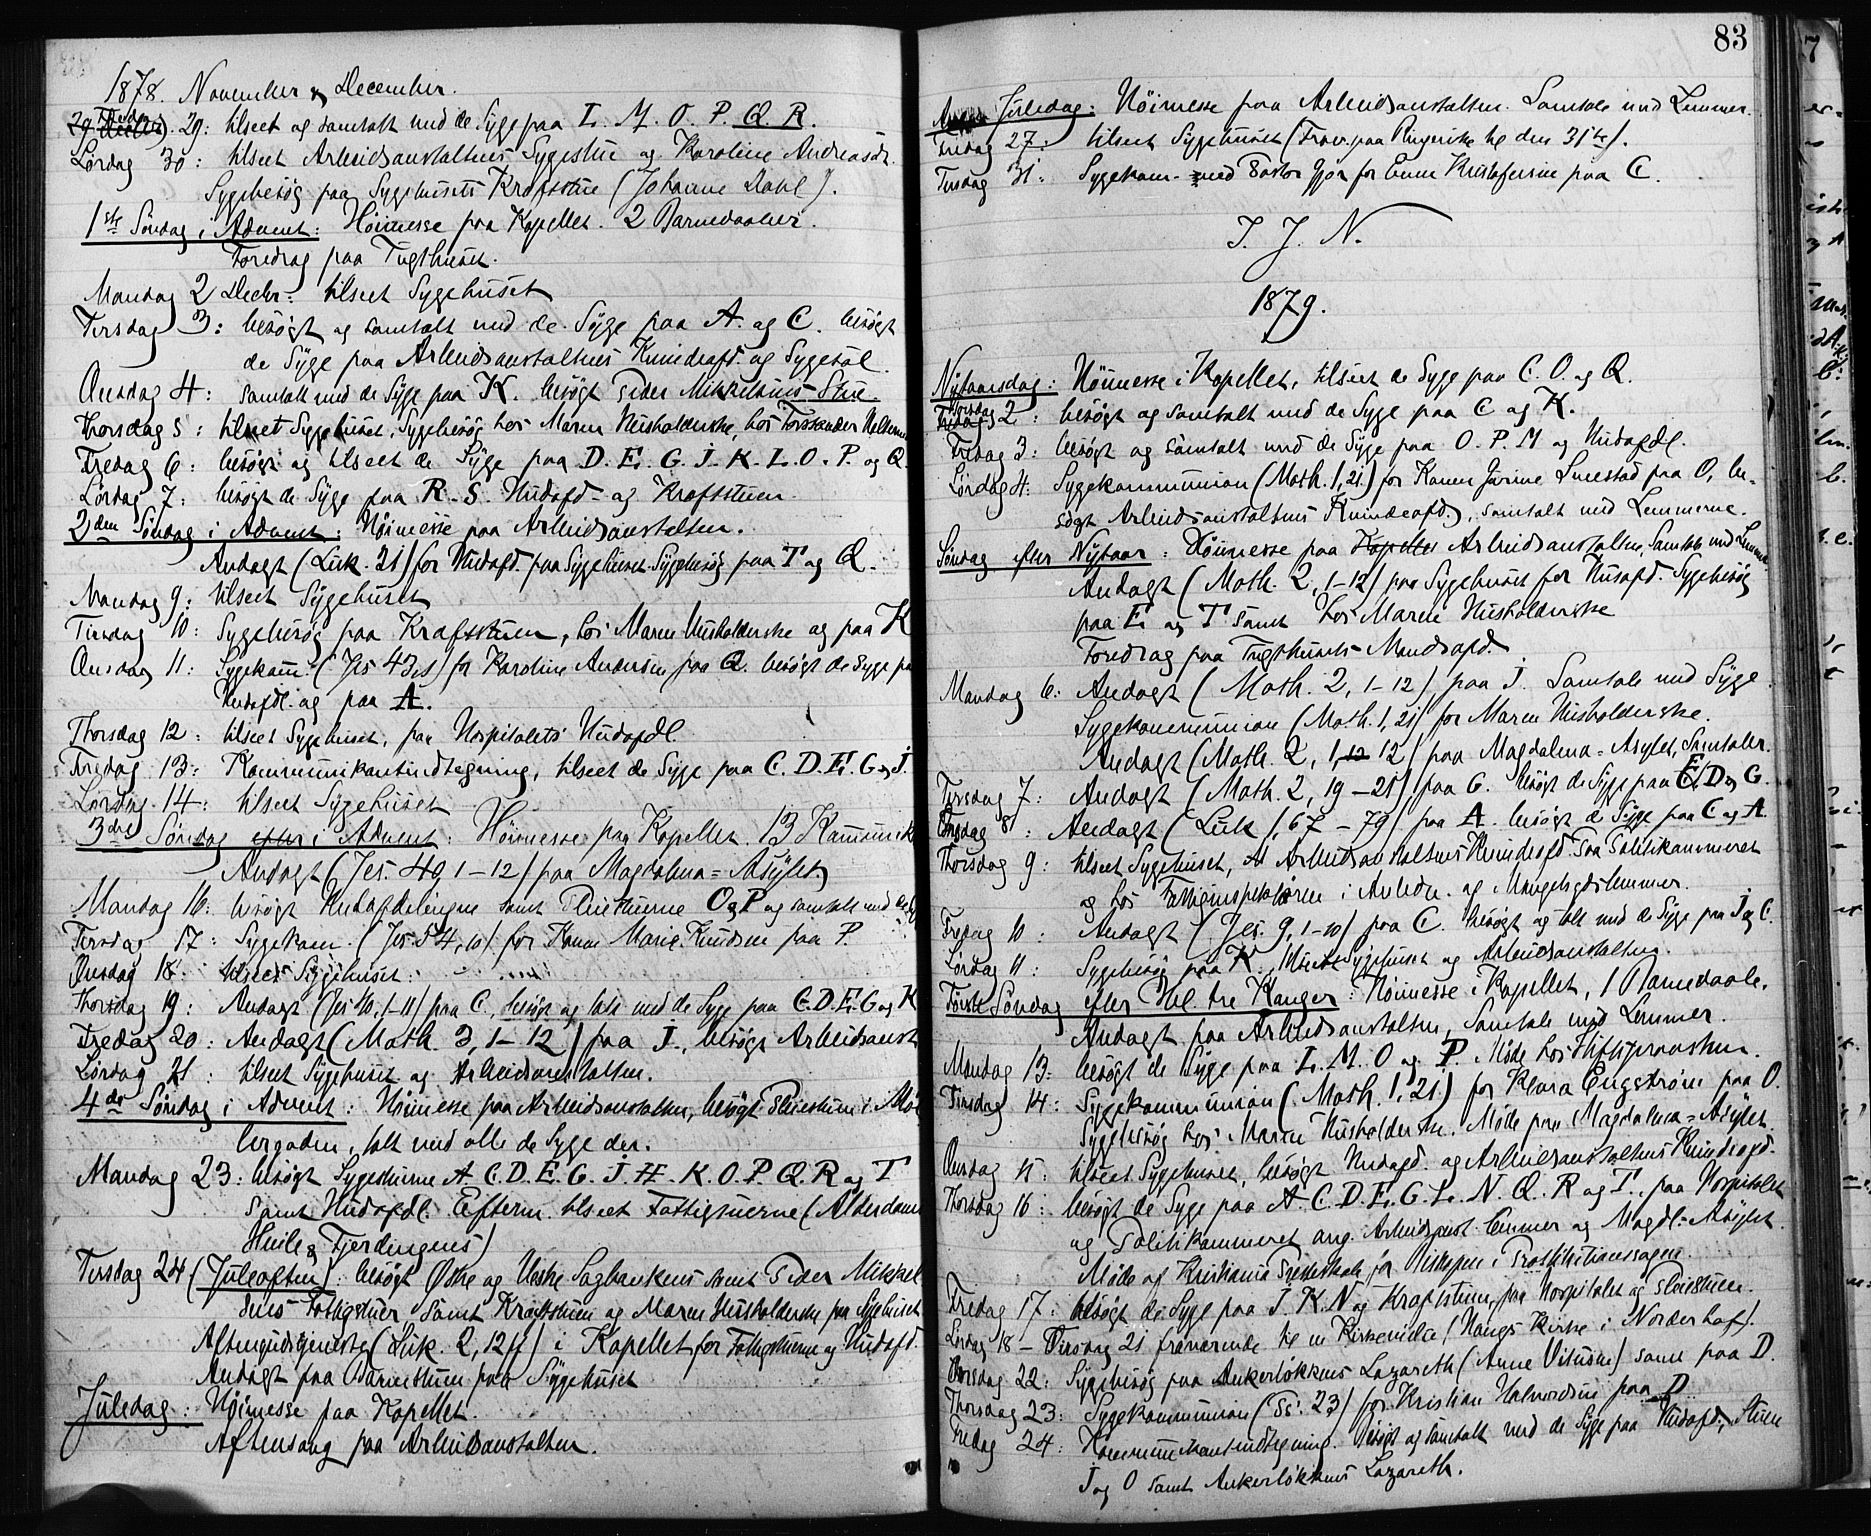 1878. November & December.
Fredag 29: tilseet og samtalt med de Syge paa L. M. O. P. Q. R.
Lørdag 30: tilseet Arbeidsanstaltens Sygestue og Karoline Andreasdr.
Sygebesøg paa Sygehusets Krafstue (Johanne Dahl).
1ste Søndag i Advent: Høimesse paa Kapellet. 2 Barnedaaber.
Foredrag paa Tugthuset.
Mandag 2 Decbr: tilseet Sygehuset
Tirsdag 3: besøgt og samtalt med de Syge paa A. og C. besøgt
de Syge paa Arbeidsanstaltens Kvindeafd. og Sygesal.
Onsdag 4: samtalt med de Syge paa K. besøgt Peder Mikkelsens Stue.
Thorsdag 5: tilseet Sygehuset, Sygebesøg hos Maren Husholderske, hos Forstander
Fredag 6: besøgt og tilseet de Syge paa D. E. G. J. K. L. O. P. og Q
Lørdag 7: besøgt de Syge paa R. S. Hudafd. og Krafstuen.
2den Søndag i Advent: Høimesse paa Arbeidsanstalten.
Andagt (Luk. 21) for Hudafd. paa Sygehuset. Sygebesøg paa T og Q.
Mandag 9: tilseet Sygehuset
Tirsdag 10: Sygebesøg paa Krafstuen, hos Maren Husholderske og paa K
Onsdag 11: Sygekom. (Jes 43) for Karoline Andersen paa Q. besøgt de Syge paa
Hudafdl. og paa A.
Thorsdag 12: tilseet Sygehuset, paa Hospitalets Hudafdl.
Fredag 13: Kommunikantindtegning, tilseet de Syge paa C. D. E. G og J.
Lørdag 14: tilseet Sygehuset
3die Søndag efter i Advent: Høimesse paa Kapellet. 13 Kommunik
Andagt (Jes. 40, 1-12) paa Magdalena=Asylet
Mandag 16: besøgt Hudafdelingen samt Pleiestuerne O og P og samtalt med
Tirsdag 17: Sygekom. (Jes 54,10) for Karen Marie Knudsen paa P.
Onsdag 18: tilseet Sygehuset.
Thorsdag 19: Andagt (Jes 40, 1-11) paa C, besøgt og talt med de Syge paa C. D. E. G og K
Fredag 20: Andagt (Math. 3, 1-12) paa J., besøgt Arbeidsanst
Lørdag 21: tilseet Sygehuset og Arbeidsanstalten.
4de Søndag i Advent: Høimesse paa Arbeidsanstalten, besøgt Pleiestuen i Møl
lergaden, talt med alle de Syge der.
Mandag 23: besøgt Sygestuerne A. C. D. E. G. J. H. K. O. P. Q. R og T
samt Hudafdl. Efterm. tilseet Fattigstuerne (Alderdoms
Hvile & Fjerdingens)
Tirsdag 24 (Juleaften): besøgt Østre og Vestre Sagbankens samt Peder Mikkel
sens Fattigstuer samt Krafstuen og Maren Husholderske paa Sygehuset
Aftengudstjeneste (Luk. 2, 12ff) i Kapellet for Fattigstuerne og Hudafd.
Andagt paa Barnestuen paa Sygehuset
Juledag: Høimesse paa Kapellet.
Aftensang paa Arbeidsanstalten.
83
Anden Juledag: Høimesse paa Arbeidsanstalten. Samtale med Lemmer.
Fredag 27: tilseet Sygehuset (Frav. paa Ringerike til den 31te).
Tirsdag 31: Sygekom. med Pastor Gjør for Emma Kristofersen paa C.
I. J. N.
1879.
Nytaarsdag: Høimesse i Kapellet, tilseet de Syge paa C. O. og Q.
Thorsdag 2: besøgt og samtalt med de Syge paa C og K.
Fredag 3: besøgt og samtalt med de Syge paa O. P. M og Hudafdl.
Lørdag 4: Sygekommunion (Math. 1, 21) for Karen Jørine Smestad paa O, be-
søgt Arbeidsanstaltens Kvindeafd., samtalt med Lemmerne.
Søndag efter Nytaar: Høimesse paa Kapellet Arbeidsanstalten, Samtale med Lemmer
Andagt (Math. 2, 1-12) paa Sygehuset for Husafd. Sygebesøg
paa E. og T samt hos Maren Husholderske
Foredrag paa Tugthusets Mandsafd.
Mandag 6: Andagt (Math. 2, 1-12) paa J. Samtale med Syge.
Sygekommunion (Math. 1, 21) for Maren Husholderske.
Andagt (Math. 2, 1, 12 12) paa Magdalena=Asylet, Samtaler.
Tirsdag 7: Andagt (Math. 2, 19-21) paa G. besøgt de Syge paa E, D og G.
Onsdag 8: Andagt (Luk 1, 67-79) paa A. besøgt de Syge paa C og A.
Thorsdag 9: tilseet Sygehuset, Arbeidsanstaltens Kvindeafd. paa Politikammeret
og hos Fattiginspektøren i Anledn. og Mangelsgdslemmer.
Fredag 10: Andagt (Jes. 9, 1-10) paa C. besøgt og talt med de Syge paa J og C.
Lørdag 11: Sygebesøg paa K., tilseet Sygehuset og Arbeidsanstalten.
Første Søndag efter Hel. tre Konger: Høimesse i Kapellet, 1 Barnedaab.
Andagt paa Arbeidsanstalten, Samtale med Lemmer.
Mandag 13: besøgt de Syge paa L. M. O og P. Møde hos Stiftsprovsten.
Tirsdag 14: Sygekommunion (Math. 1, 21) for Klara Engstrøm paa O.
Sygebesøg hos Maren Husholderske. Møde paa Magdalena=Asylet.
Onsdag 15: tilseet Sygehuset, besøgt Hudafd. og Arbeidsanstaltens Kvindeafd.
Thorsdag 16: besøgt de Syge paa A. C. D. E. G. L. N. Q. R og T. paa Hospitalet
og Politikammeret ang. Arbeidsanst. Lemmer og Magdl.=Asylet.
Møde af Kristiania Presteskab for Biskopen i Prostitutionssagen.
Fredag 17: besøgt de Syge paa J. K. N og Krafstuen, paa Hospitalet og Pleiestuen.
Lørdag 18 - Tirsdag 21 fraværende til en Kirkevielse (Haugs Kirke i Norderhof).
Onsdag 22: Sygebesøg paa Ankerløkkens Lazareth (Anne Vituske) samt paa D.
Thorsdag 23: Sygekommunion (Ps. 23) for Kristian Halvorsen paa D
Fredag 24: Kommunikantindtegning. Besøgt og samtalt med de Syge paa Hudafd., Stuen
J og O samt Ankerløkkens Lazareth.